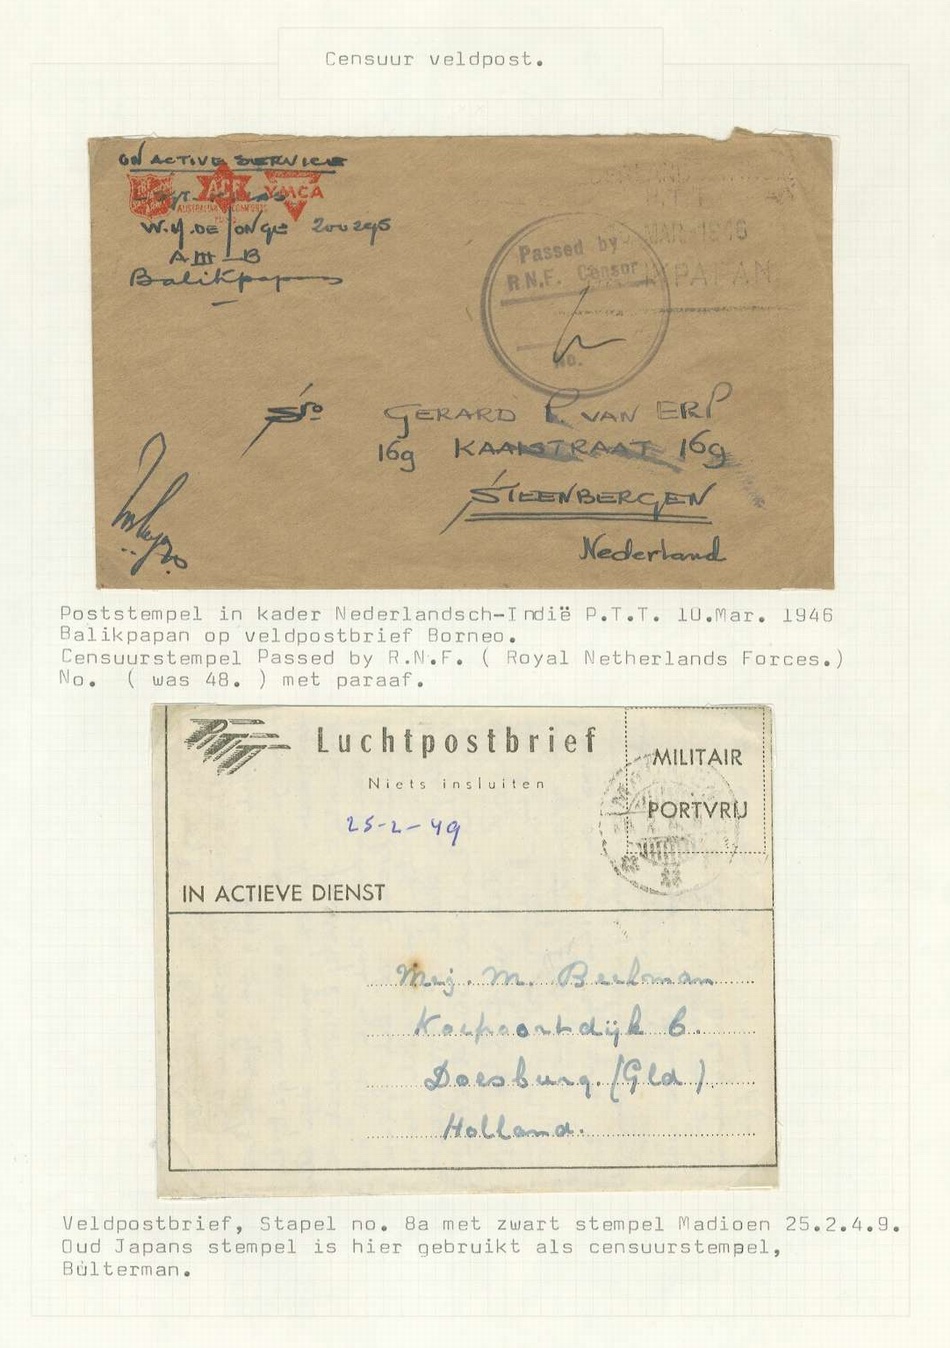 Censuur veldpost.
ON ACTIVE SERVICE
THE SALVATION ARMY
ACF
YMCA
AUSTRALIAN COMFORTS FUND
W.M. DE JONGE 200295
A III - B
Balikpapan
MAR 1946
Passed by
R.N.F. Censor
No.
GERARD P. VAN ERP
16g KAAISTRAAT 16g
STEENBERGEN
Nederland
Poststempel in kader Nederlandsch-Indië P.T.T. 10.Mar. 1946
Balikpapan op veldpostbrief Borneo.
Censuurstempel Passed by R.N.F. ( Royal Netherlands Forces.)
No. ( was 48. ) met paraaf.
PTT
Luchtpostbrief
Niets insluiten
MILITAIR
PORTVRIJ
25-2-49
IN ACTIEVE DIENST
Mej. M. Beelman
Koepoortdijk 6.
Doesburg. (Gld)
Holland.
Veldpostbrief, Stapel no. 8a met zwart stempel Madioen 25.2.4.9.
Oud Japans stempel is hier gebruikt als censuurstempel,
Bulterman.